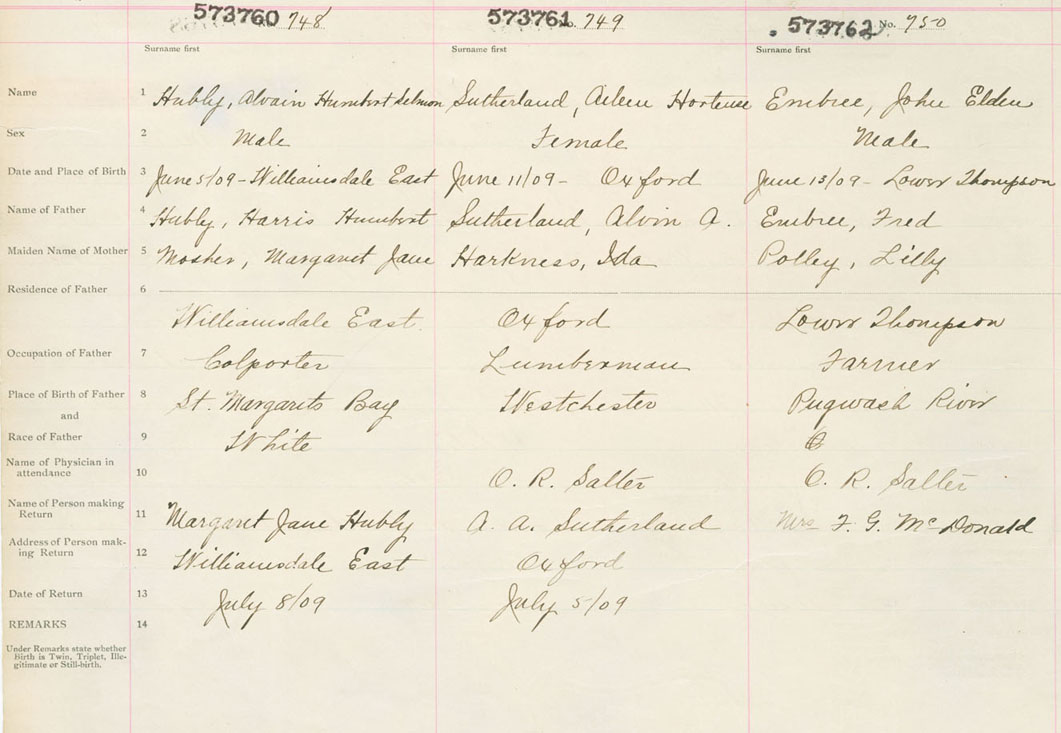 573760 748 573761 No. 749 573762 No. 750
Surname first Surname first Surname first
Name 1 Hubly, Alvain Humbert Selmon Sutherland, Aileen Hortense Embree, John Elden
Sex 2 Male Female Male
Date and Place of Birth 3 June 5/09 - Williamsdale East June 11/09 - Oxford June 13/09 - Lower Thompson
Name of Father 4 Hubly, Harris Humbert Sutherland, Alvin A. Embree, Fred
Maiden Name of Mother 5 Mosher, Margaret Jane Harkness, Ida Polley, Lilly
Residence of Father 6
Williamsdale East. Oxford Lower Thompson
Occupation of Father 7 Colporter Lumberman Farmer
Place of Birth of Father 8 St. Margarets Bay Westchester Pugwash River
and
Race of Father 9 White
Name of Physician in
attendance 10 O. R. Salter O. R. Salter
Name of Person making
Return 11 Margaret Jane Hubly A. A. Sutherland Mrs F. G. McDonald
Address of Person mak-
ing Return 12 Williamsdale East Oxford
Date of Return 13 July 8/09 July 5/09
REMARKS 14
Under Remarks state whether
Birth is Twin, Triplet, Ille-
gitimate or Still-birth.